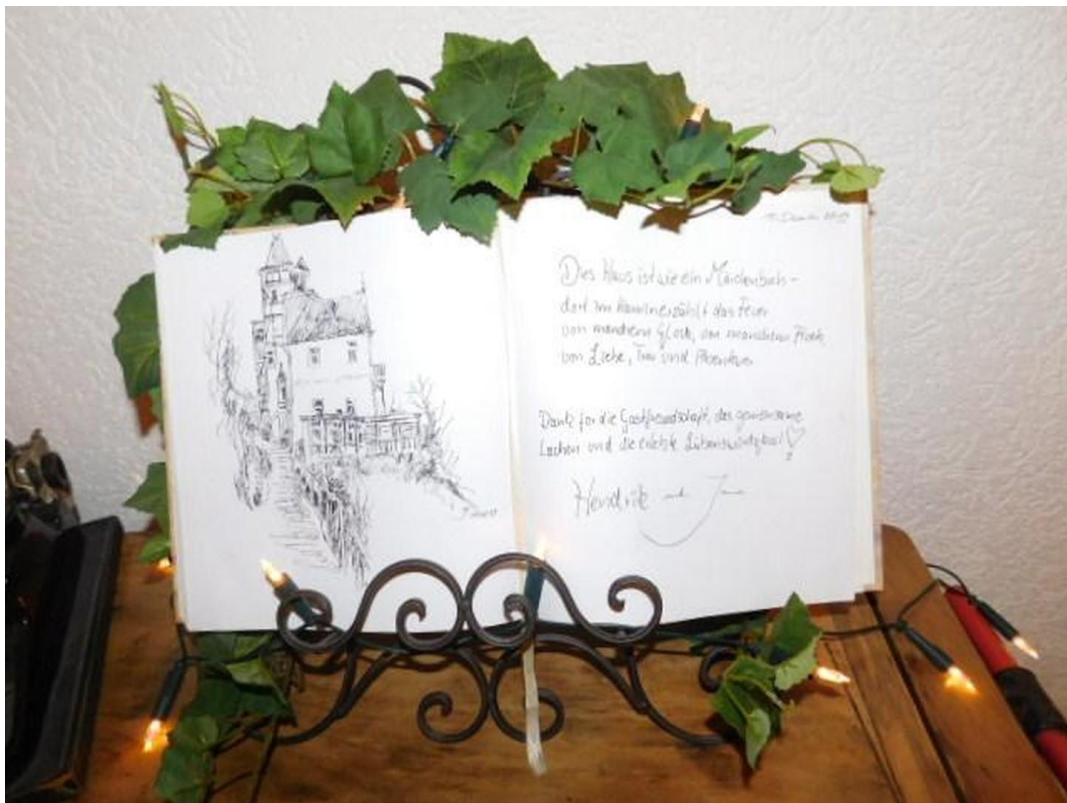 Dies Haus ist wie ein Märchenbuch –
dort im Kamin erzählt das Feuer
von manchem Glück, von manchem Fluch,
von Liebe, Treu und Abenteuer
Dank für die Gastfreundschaft, das gemeinsame
Lachen und die erlebte Liebenswürdigkeit
Hendrik und